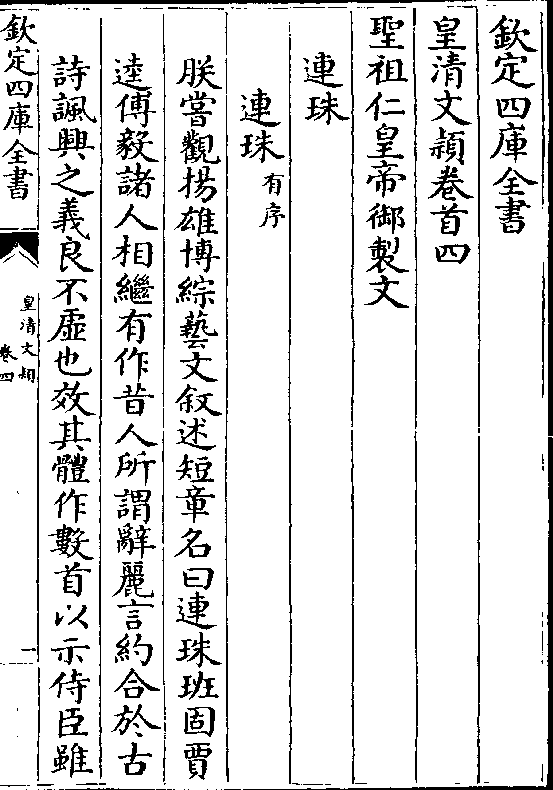 欽定四庫全書
皇清文頴卷首四
聖祖仁皇帝御製文
連珠
連珠有序
朕嘗觀揚雄博綜藝文叙述短章名曰連珠班固賈
逵傅毅諸人相繼有作昔人所謂辭麗言約合於古
詩諷興之義良不虛也效其體作數首以示侍臣雖
欽定四庫全書
皇清文頴
卷四
一